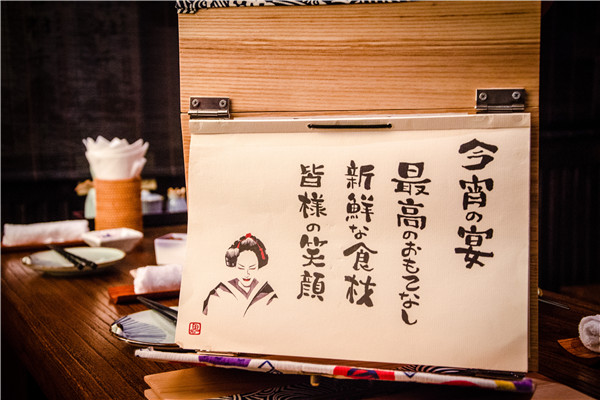 今宵の宴
最高のおもてなし
新鮮な食材
皆様の笑顔